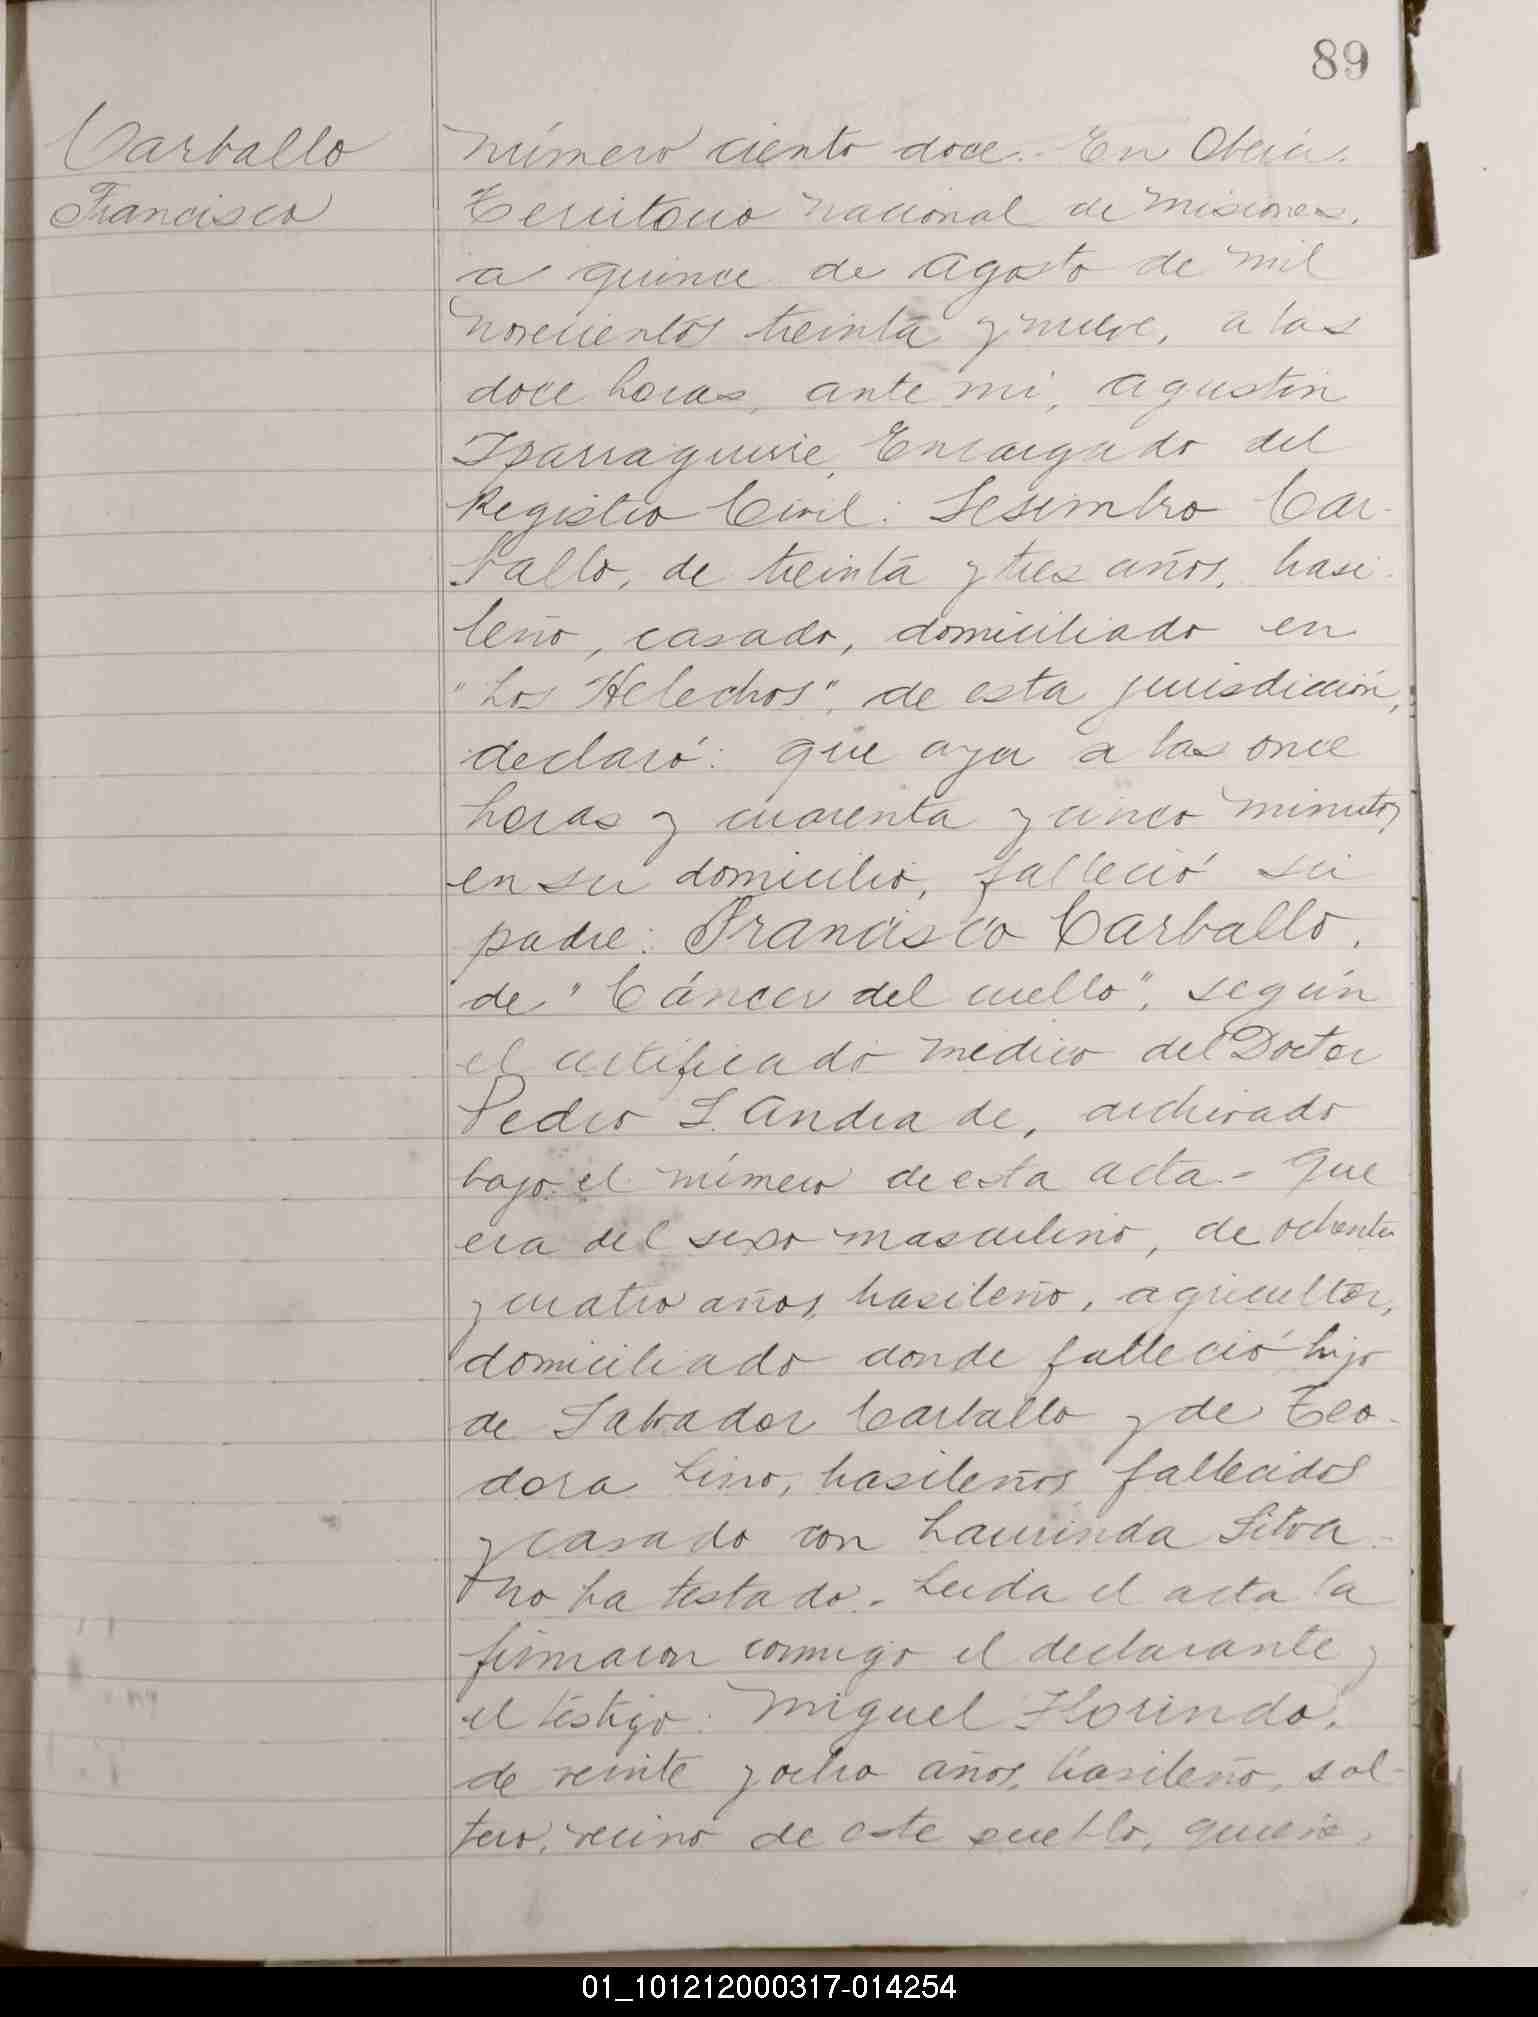 89
Carballo
Francisco
Número ciento doce.- En Oberá.
Territorio Nacional de Misiones,
a quince de Agosto de mil
novecientos treinta y nueve, a las
doce horas, ante mí, Agustín
Iparraguirre, Encargado del
Registro Civil: Sesimbro Car-
ballo, de treinta y tres años, brasi-
leño, casado, domiciliado en
"Los Helechos", de esta jurisdicción,
declaró: Que ayer a las once
horas y cuarenta y cinco minutos
en su domicilio, falleció su
padre: Francisco Carballo,
de "Cáncer del cuello", según
el certificado médico del Doctor
Pedro S. Andrade, archivado
bajo el número de esta acta.- Que
era del sexo masculino, de ochenta
y cuatro años, brasileño, agricultor,
domiciliado donde falleció hijo
de Salvador Carballo y de Teo-
dora Lino, brasileños fallecidos
y casado con Laurinda Silva.-
No ha testado.- Leida el acta la
firmaron conmigo el declarante y
el testigo: Miguel Florindo,
de veinte y ocho años, brasileño, sol-
tero, vecino de este pueblo, quien
01_101212000317-014254